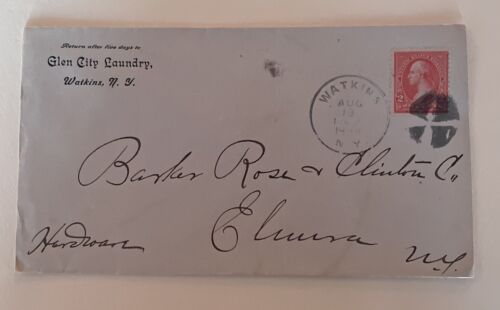 Return after five days to
Glen City Laundry,
Watkins, N. Y.
WATKINS
AUG
19
N.Y.
Barker Rose & Clinton Co,,
Elmira
N.Y.
Hardware